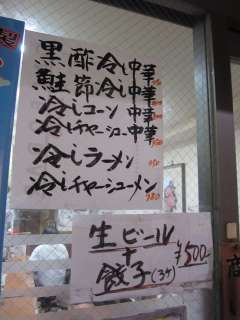 黒酢冷し中華
鮭節冷し中華
冷しコーン中華
冷しチャーシュー中華
冷しラーメン
冷しチャーシューメン
生ビール
+
餃子(3ケ)
¥500
製